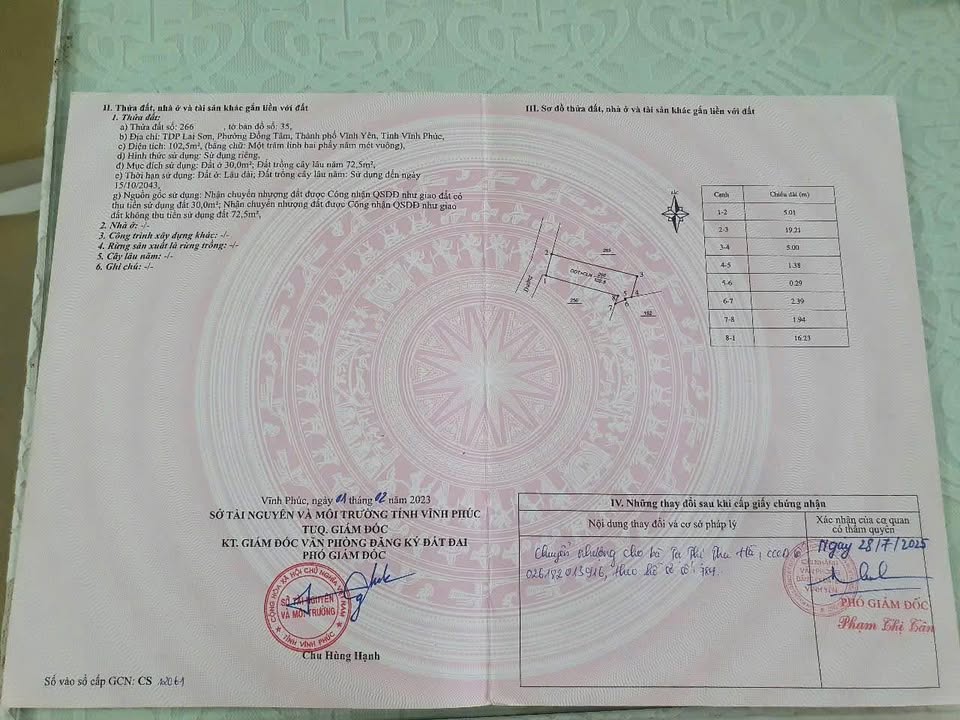 II. Thửa đất, nhà ở và tài sản khác gắn liền với đất
1. Thửa đất:
a) Thửa đất số: 266 , tờ bản đồ số: 35,
b) Địa chỉ: TDP Lai Sơn, Phường Đồng Tâm, Thành phố Vĩnh Yên, Tỉnh Vĩnh Phúc,
c) Diện tích: 102,5m², (bằng chữ: Một trăm linh hai phẩy năm mét vuông),
d) Hình thức sử dụng: Sử dụng riêng,
đ) Mục đích sử dụng: Đất ở 30,0m²; Đất trồng cây lâu năm 72,5m²,
e) Thời hạn sử dụng: Đất ở: Lâu dài; Đất trồng cây lâu năm: Sử dụng đến ngày
15/10/2043,
g) Nguồn gốc sử dụng: Nhận chuyển nhượng đất được Công nhận QSDĐ như giao đất có
thu tiền sử dụng đất 30,0m²; Nhận chuyển nhượng đất được Công nhận QSDĐ như giao
đất không thu tiền sử dụng đất 72,5m²,
2. Nhà ở: -/-
3. Công trình xây dựng khác: -/-
4. Rừng sản xuất là rừng trồng: -/-
5. Cây lâu năm: -/-
6. Ghi chú: -/-
Vĩnh Phúc, ngày 01 tháng 02 năm 2023
SỞ TÀI NGUYÊN VÀ MÔI TRƯỜNG TỈNH VĨNH PHÚC
TUQ. GIÁM ĐỐC
KT. GIÁM ĐỐC VĂN PHÒNG ĐĂNG KÝ ĐẤT ĐAI
PHÓ GIÁM ĐỐC
CỘNG HÒA XÃ HỘI CHỦ NGHĨA VIỆT NAM
SỞ TÀI NGUYÊN
VÀ MÔI TRƯỜNG
TỈNH VĨNH PHÚC
Chu Hùng Hạnh
Số vào sổ cấp GCN: CS 12061
III. Sơ đồ thửa đất, nhà ở và tài sản khác gắn liền với đất
BẮC
Cạnh Chiều dài (m)
1-2 5.01
2-3 19.21
3-4 5.00
4-5 1.38
5-6 0.29
6-7 2.39
7-8 1.94
8-1 16.23
Đường
2
265
3
ODT+CLN 266 102.5
1
8
5
4
7
6
IV. Những thay đổi sau khi cấp giấy chứng nhận
Nội dung thay đổi và cơ sở pháp lý
Xác nhận của cơ quan
có thẩm quyền
Chuyển nhượng cho bà Tạ Thị Thu Hà; CCCD số
026182013916, theo hồ sơ số
Ngày 28/7/2025
PHÓ GIÁM ĐỐC
Phạm Thị Tân